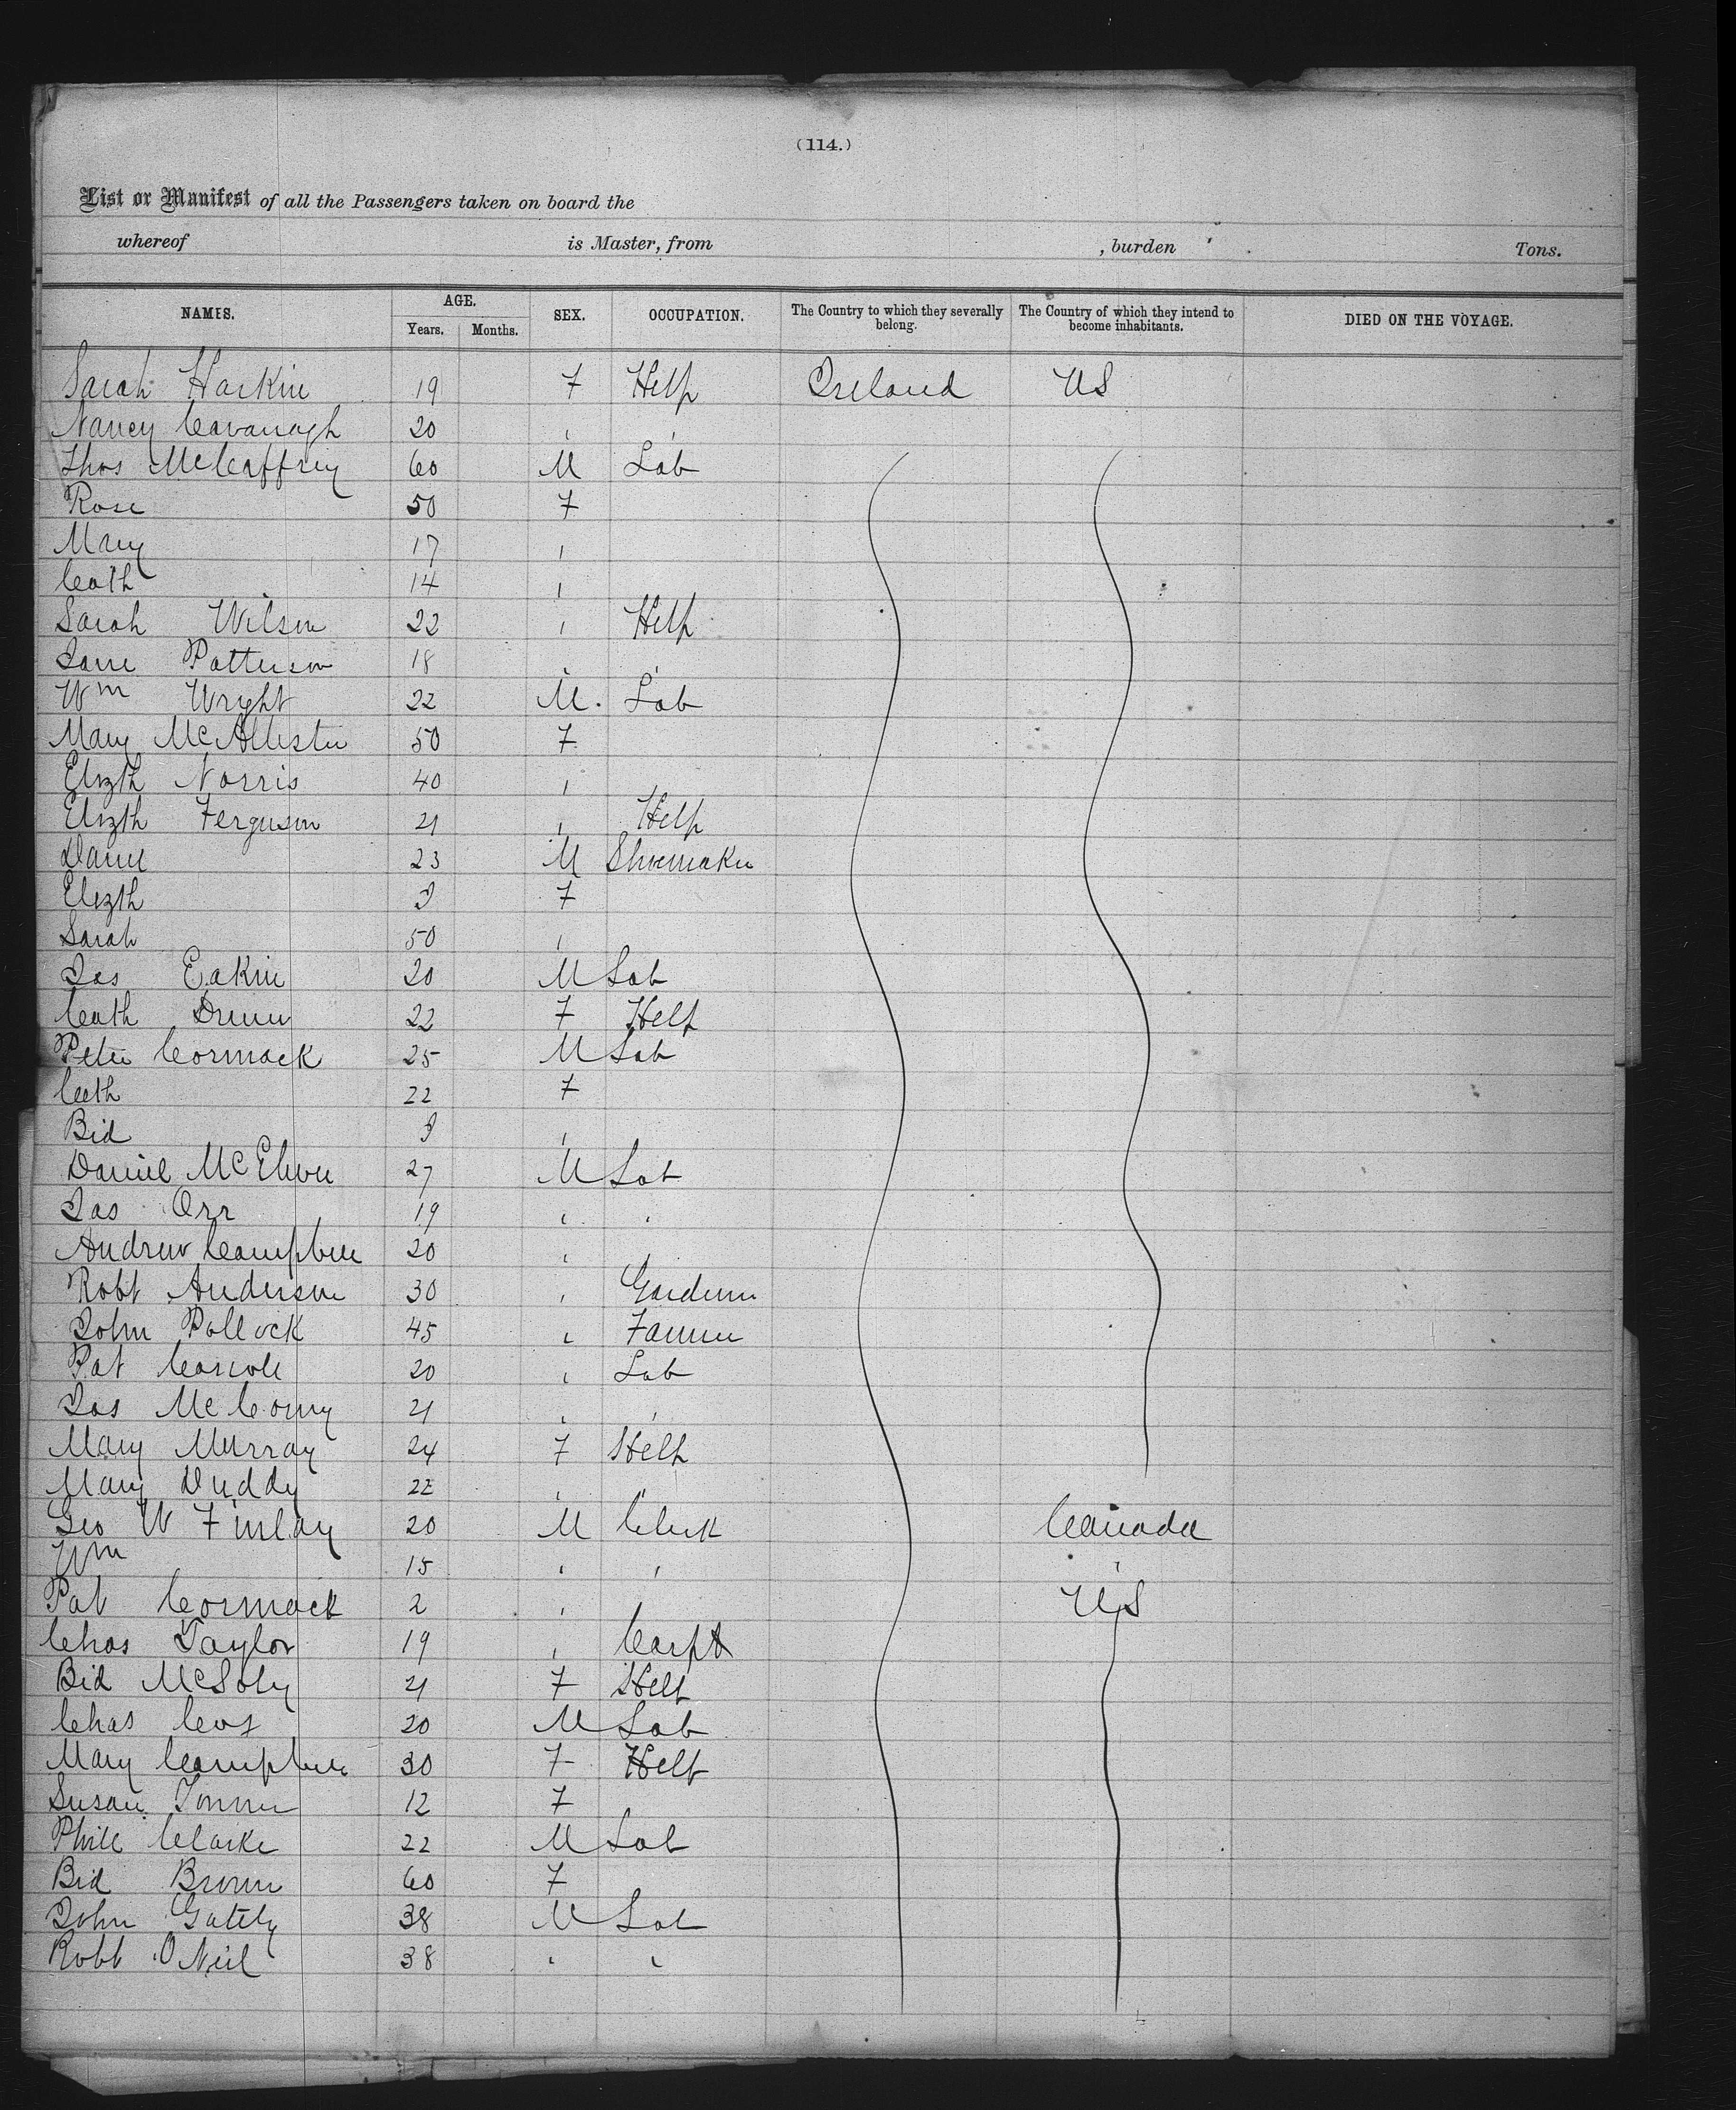 (114.)
List or Manifest of all the Passengers taken on board the
whereof is Master, from , burden Tons.
NAMES. AGE. Years. Months. SEX. OCCUPATION. The Country to which they severally belong. The Country of which they intend to become inhabitants. DIED ON THE VOYAGE.
Sarah Harkin 19 F Help Ireland US
Nancy Cavanagh 20 " "
Thos McCaffrey 60 M Lab
Rose 50 F
Mary 17 "
Cath 14 "
Sarah Wilson 22 " Help
Jane Patterson 18 " "
Wm Wright 22 M. Lab
Mary McAllister 50 F
Elizth Norris 40 "
Elizth Ferguson 21 " Help
Daniel 23 M Shoemaker
Elizth F
Sarah 50 "
Jas Eakin 20 M Lab
Cath 22 F Help
Peter Cormack 25 M Lab
Cath 22 F
Bid "
Daniel 27 M Lab
Jas Orr 19 " "
Andrew Campbell 20 "
Robt Anderson 30 " Gardener
John Pollock 45 " Farmer
Pat Carroll 20 " Lab
Jas 21 " "
Mary Murray 24 F Help
Mary Duddy 22 " "
Geo W Finlay 20 M Clerk Canada
Wm 15 " " "
Pat Cormack 2 " US
Chas Taylor 19 " Carpt
Bid 21 F Help
Chas 20 M Lab
Mary Campbell 30 F Help
Susan 12 F
Phill Clarke 22 M Lab
Bid Brown 60 F
John Gately 38 M Lab
Robt O Neil 38 " "